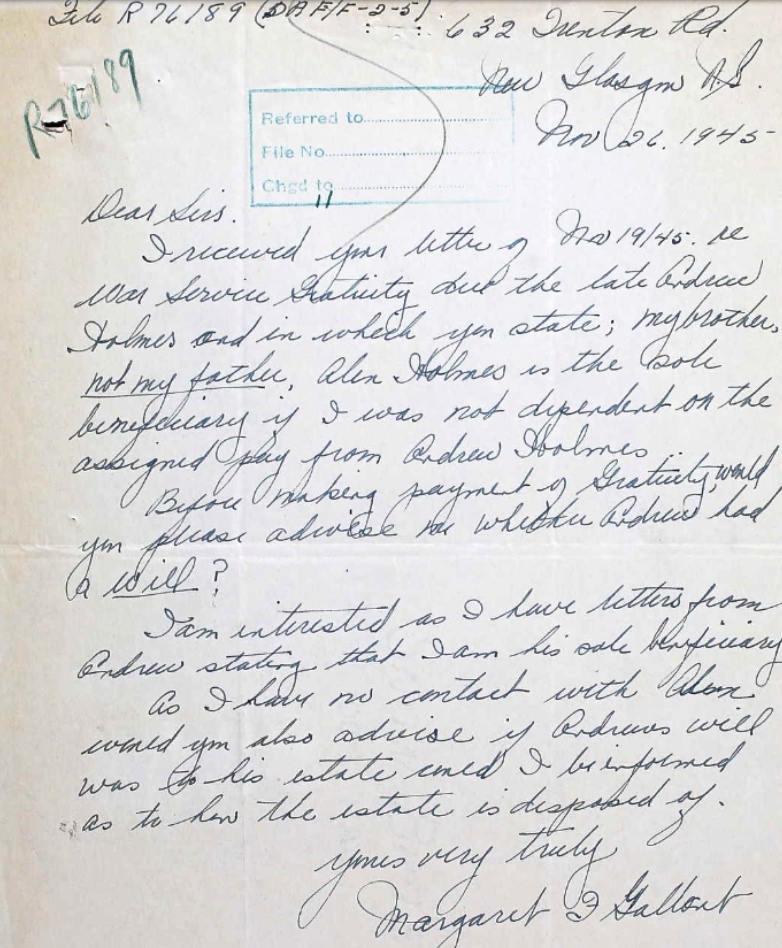 File R 76189 (DAF/F-2-5).
632 Trenton Rd.
New Glasgow N.S.
R-76189
Nov 26, 1945
Referred to
File No
Chgd to
11
Dear Sirs.
I received your letter of Nov 19/45. re
War Service Gratuity due the late Andrew
Holmes and in which you state; my brother,
not my father, Alen Holmes is the sole
beneficiary if I was not dependent on the
assigned pay from Andrew Holmes.
Before making payment of Gratuity, would
you please advise me whether Andrew had
a will?
I am interested as I have letters from
Andrew stating that I am his sole beneficiary
As I have no contact with Alen
would you also advise if Andrews will
was to his estate could I be informed
as to how the estate is disposed of.
Yours very truly
Margaret F Gallant